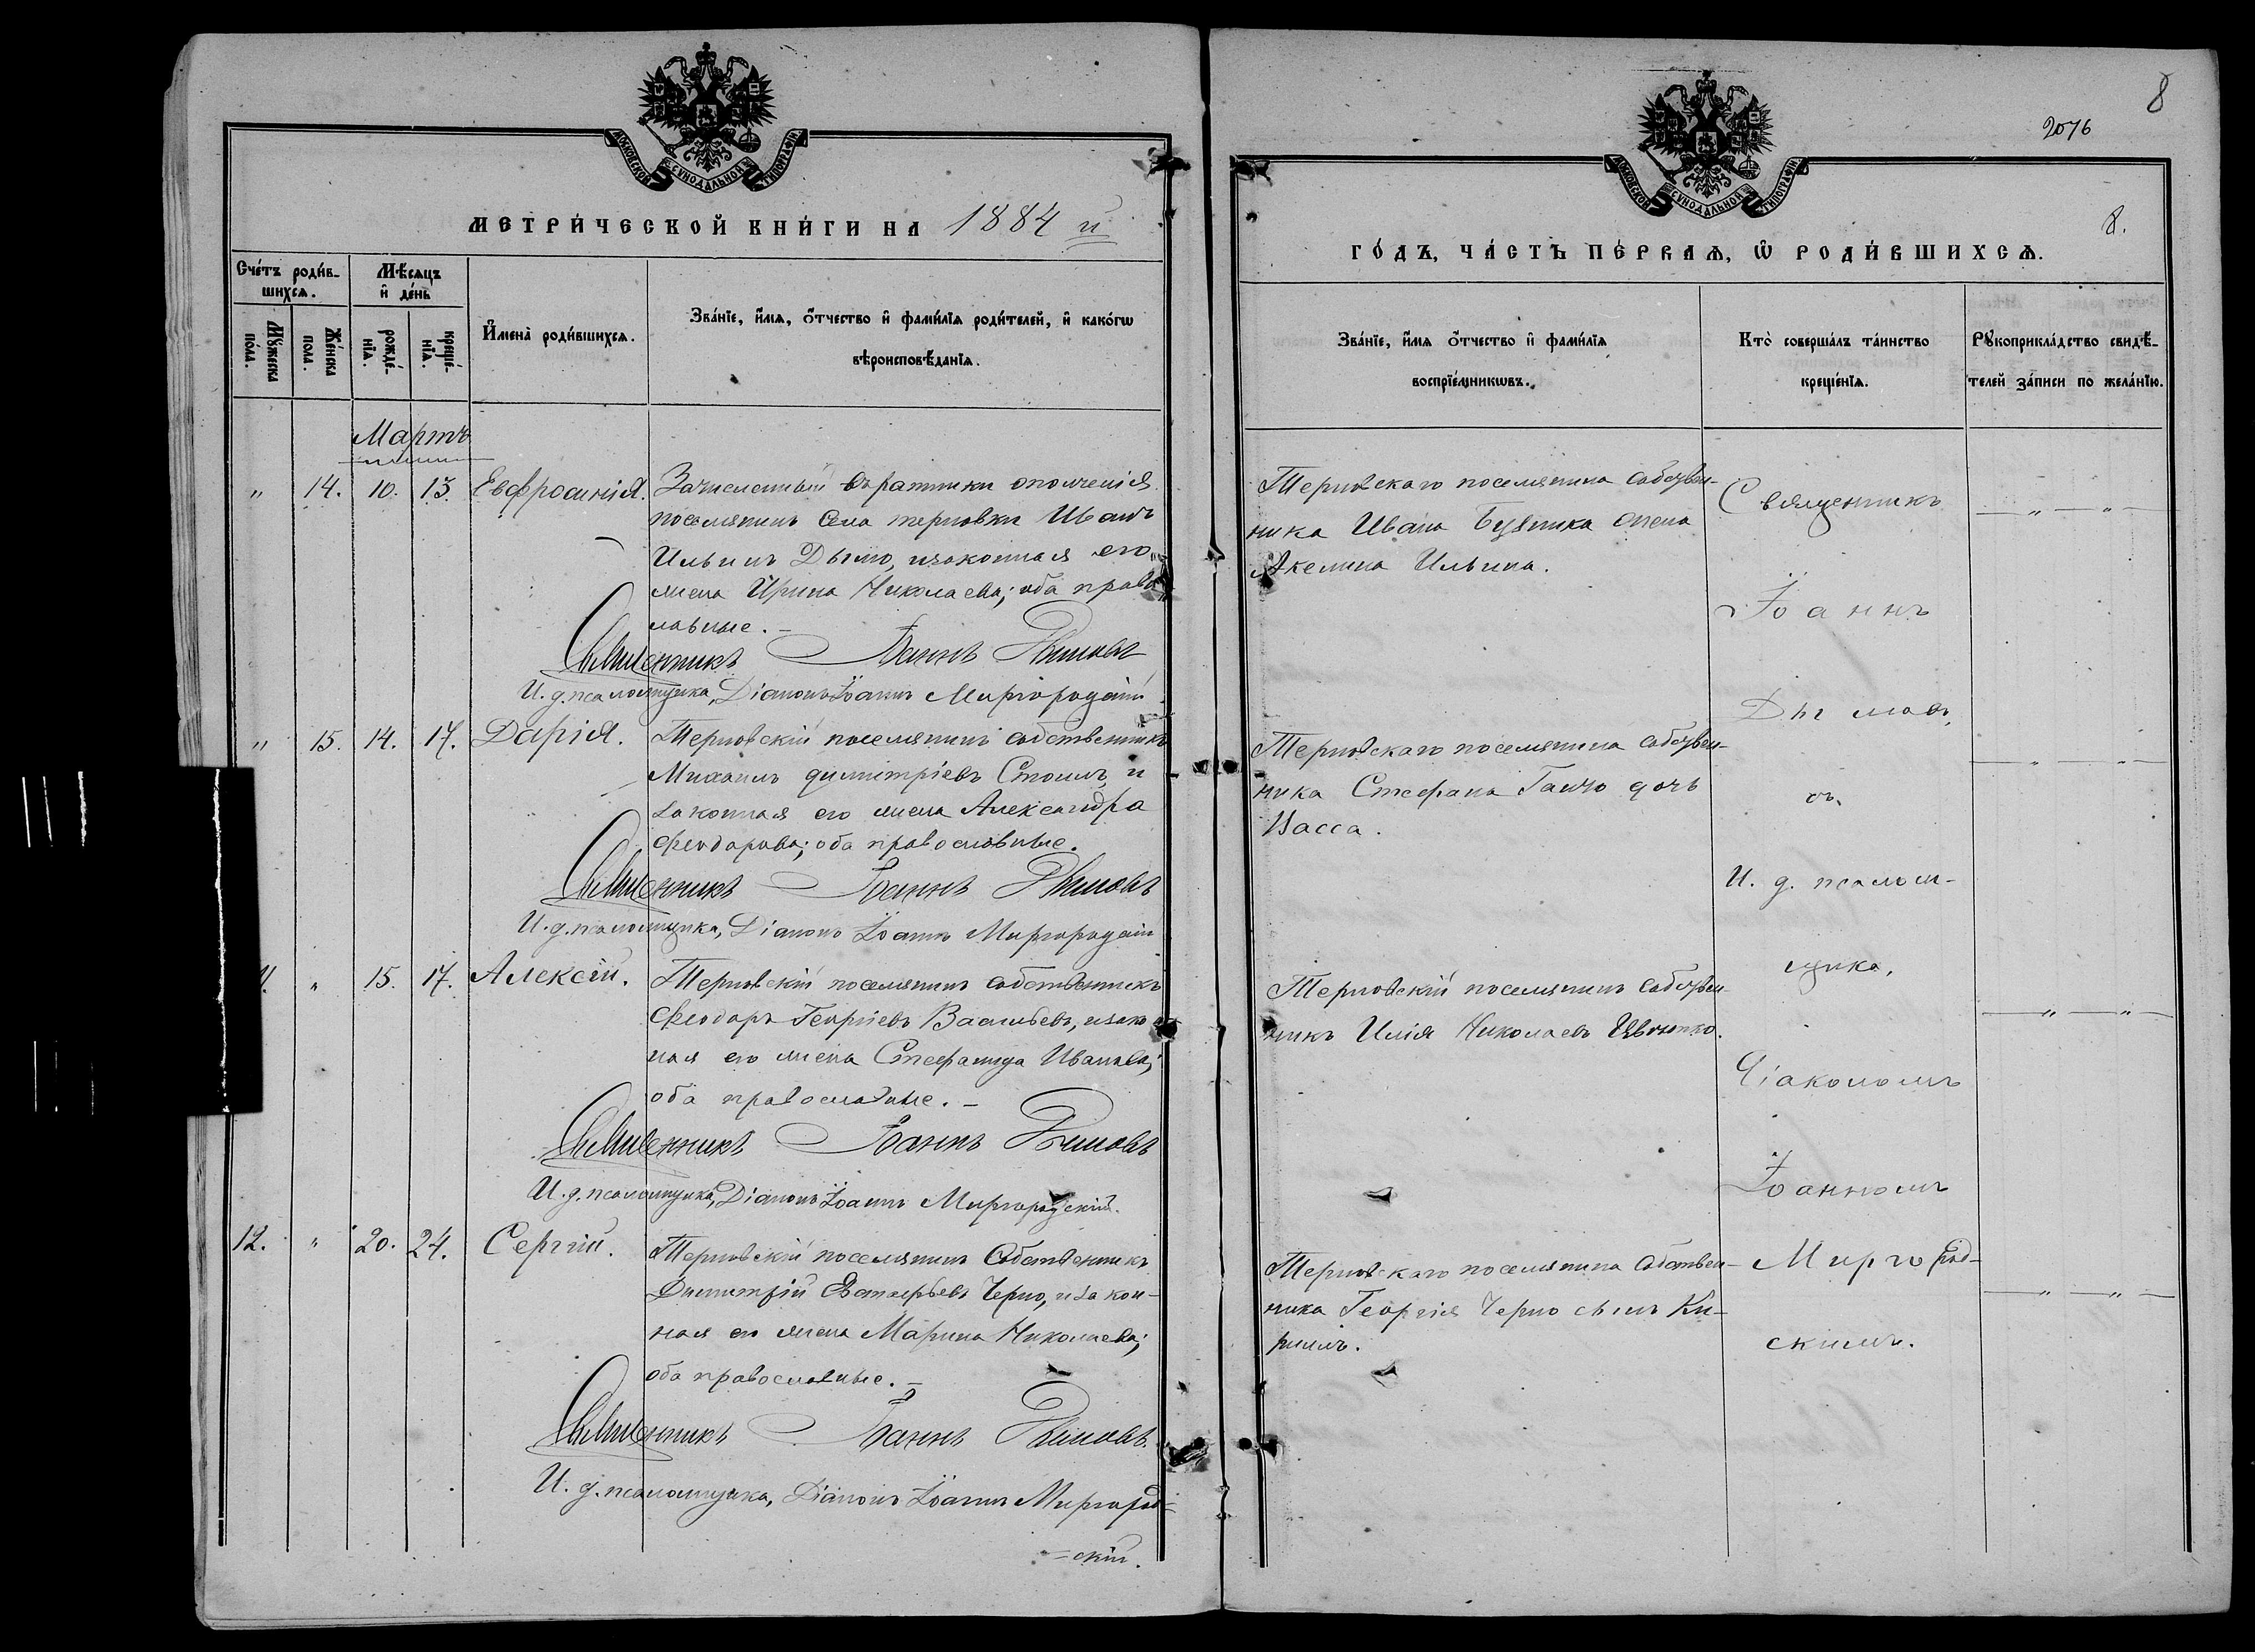 МОСКОВСКОЙ СѴНОДАЛЬНОЙ ТИПОГРАФІИ
МЕТРИ́ЧЕСКОЙ КНИ́ГИ НА 1884 й
Сче́тъ роди́в-
шихсѧ.
Мѣ́сѧцъ
и҆ де́нь
Мꙋ́жеска
по́ла.
Же́нска
пола.
рожде́-
нїѧ.
креще́-
нїѧ.
И҆мена̀ роди́вшихсѧ.
Зва́нїе, и҆́мѧ, ѻ҆́тчество и҆ фами́лїѧ роди́телей, и҆ како́гѡ
вѣроисповѣ́данїѧ.
Мартъ
" 14. 10. 13. Евфросинія. Зачисленный въ ратники ополченія
поселянинъ села терновки Иванъ
Ильинъ Дымо, изаконная его
жена Ирина Николаева; оба право
лавные. –
Священникъ Іоаннъ Дымовъ
И. д. псаломщика, Діаконъ Іоаннъ Миргородскій
" 15. 14. 17. Дарія. Терновскій поселянинъ собственникъ
Михаилъ димитріевъ Стоилъ, и
законная его жена Александра
Феодорова; оба православные.
Священникъ Іоаннъ Дымовъ
И. д. псаломщика, Діаконъ Іоаннъ Миргородскій
" 15. 17. Алексій. Терновскій поселянинъ собственникъ
Феодоръ Георгіевъ Васильевъ, изакон
ная его жена Стефанида Иванова;
оба православные. –
Священникъ Іоаннъ Дымовъ
И. д. псаломщика, Діаконъ Іоаннъ Миргородскій.
12. " 20. 24. Сергій. Терновскій поселянинъ Собственникъ
Димитрій Черно, и закон-
ная его жена Марина Николаева;
оба православные. –
Священникъ Іоаннъ Дымовъ.
И. д. псаломщика, Діаконъ Іоаннъ Миргород=
=скій.
8
2076
МОСКОВСКОЙ СѴНОДАЛЬНОЙ ТИПОГРАФІИ
8.
ГО́ДЪ, ЧА́СТЬ ПЕ́РВАѦ, Ѡ҆ РОДИ́ВШИХСѦ.
Зва́нїе, и҆́мѧ ѻ҆́тчество и҆ фами́лїѧ
воспрїе́мникѡвъ.
Кто̀ соверша́лъ та́инство
креще́нїѧ.
Рꙋкоприкла́дство свидѣ́-
телей за́писи по жела́нїю.
Терновскаго поселянина собствен-
ника Ивана жена
Акелина Ильина.
Терновскаго поселянина собствен-
ника Стефана Ганчо дочь
Васса.
Терновскій поселянинъ собствен-
никъ Илія Николаевъ
Терновскаго поселянина собствен-
ника Георгія Черно сынъ Ки-
риллъ.
Священникъ
Іоаннъ
Дымовъ
съ
И. д. псалом-
щика,
Діакономъ
Іоанномъ
Миргород-
скимъ.
— " — " —
— " — " —
— " — " —
— " — " —